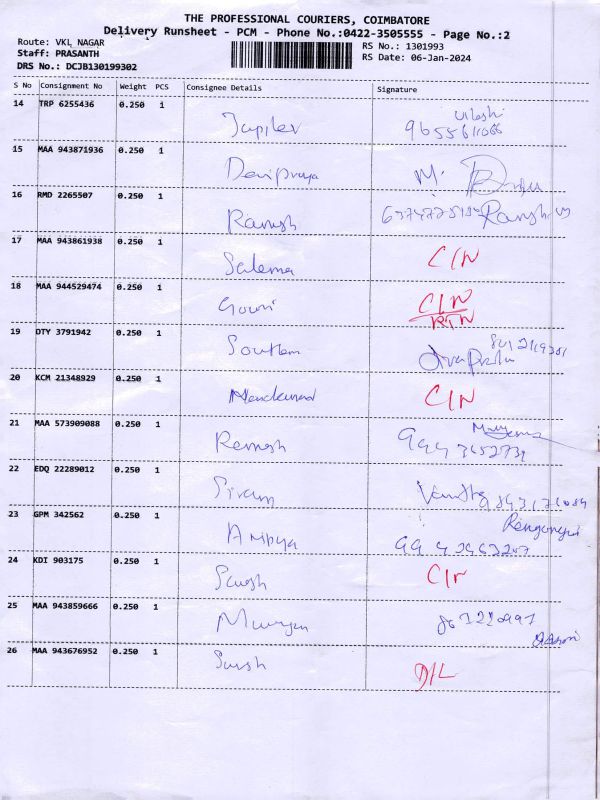 THE PROFESSIONAL COURIERS, COIMBATORE
Delivery Runsheet - PCM - Phone No.:0422-3505555 - Page No.:2
Route: VKL NAGAR
Staff: PRASANTH
DRS No.: DCJB130199302
RS No.: 1301993
RS Date: 06-Jan-2024
S No Consignment No Weight PCS Consignee Details Signature
14 TRP 6255436 0.250 1 Jupiter
15 MAA 943871936 0.250 1 Devipriya M.
16 RMD 2265507 0.250 1 Ramesh
17 MAA 943861938 0.250 1 Salema C/N
18 MAA 944529474 0.250 1 Gowri C/N
RTN
19 DTY 3791942 0.250 1 Southern
20 KCM 21348929 0.250 1 Nandkumar C/N
21 MAA 573909088 0.250 1 Remesh
22 EDQ 22289012 0.250 1 Sivam
23 GPM 342562 0.250 1
24 KDI 903175 0.250 1 C/N
25 MAA 943859666 0.250 1 Murugan
26 MAA 943676952 0.250 1 Suresh D/L